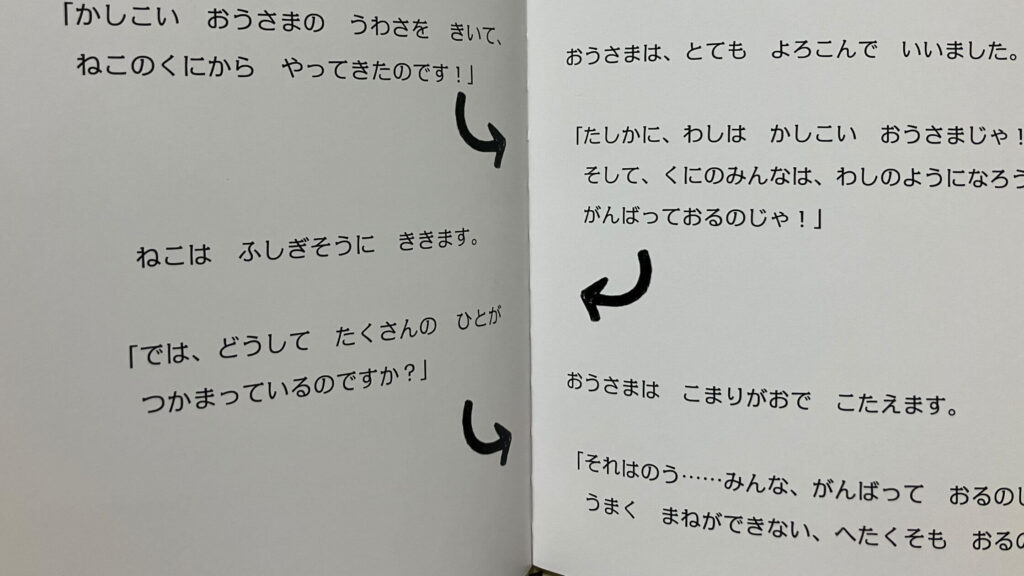 「かしこい　おうさまの　うわさを　きいて、
ねこのくにから　やってきたのです！」
おうさまは、とても　よろこんで　いいました。
「たしかに、わしは　かしこい　おうさまじゃ！
そして、くにのみんなは、わしのようになろう
がんばっておるのじゃ！」
ねこは　ふしぎそうに　ききます。
「では、どうして　たくさんの　ひとが
つかまっているのですか？」
おうさまは　こまりがおで　こたえます。
「それはのう……みんな、がんばって　おるのじ
うまく　まねができない、へたくそも　おるの